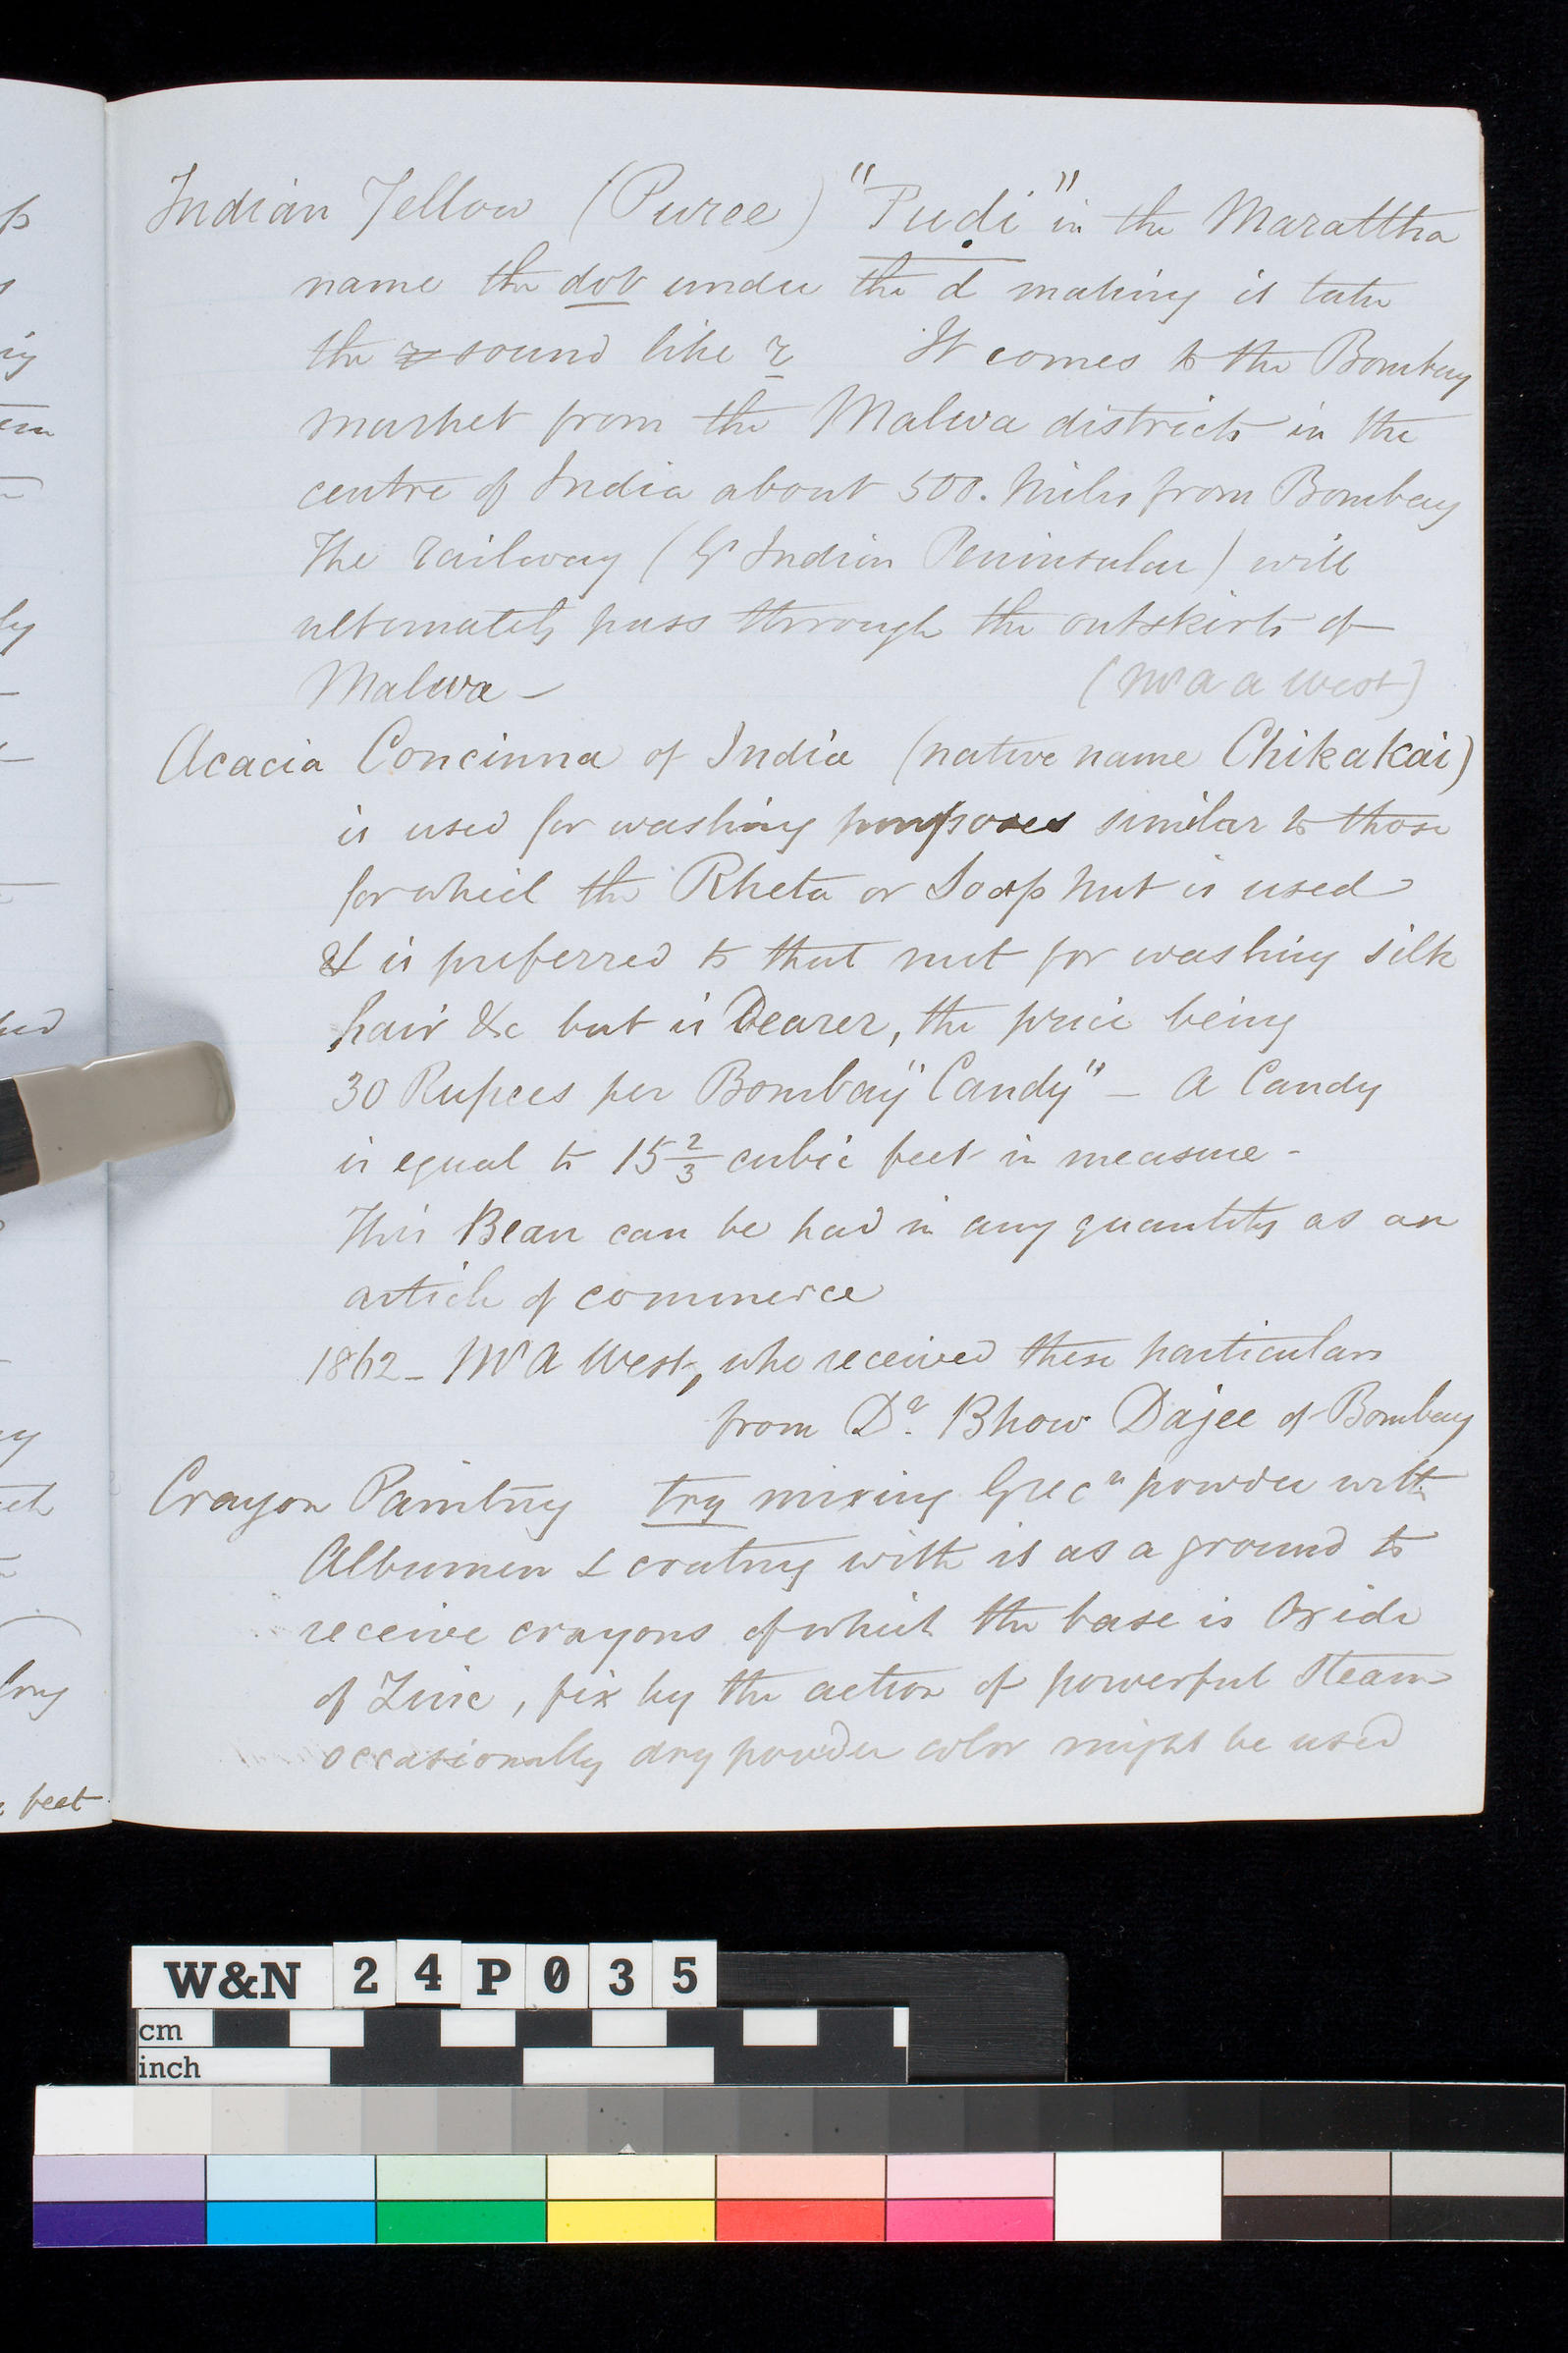 Indian Yellow (Puree) "Puḍi" in the Marattha
name the dot under the d making it take
the r sound like r It comes to the Bombay
market from the Malwa districts in the
centre of India about 500. Miles from Bombay
The Railway (Gt Indian Peninsular) will
ultimately pass through the outskirts of
Malwa – (Mr A A West)
Acacia Concinna of India (native name Chikakai)
is used for washing purposes similar to those
for which the Rheta or Soap Nut is used
& is preferred to that nut for washing silk
hair &c but is Dearer, the price being
30 Rupees per Bombay "Candy" – A Candy
is equal to 15 2/3 cubic feet in measure -
This Bean can be had in any quantity as an
article of commerce
1862 – Mr A West, who received these particulars
from Dr. Bhow Dajee of Bombay
Crayon Painting try mixing Grecn powder with
Albumen & coating with is as a ground to
receive crayons of which the base is Oxide
of Zinc, fix by the action of powerful steam
occasionally dry powder color might be used
feet
W&N 24P035
cm
inch